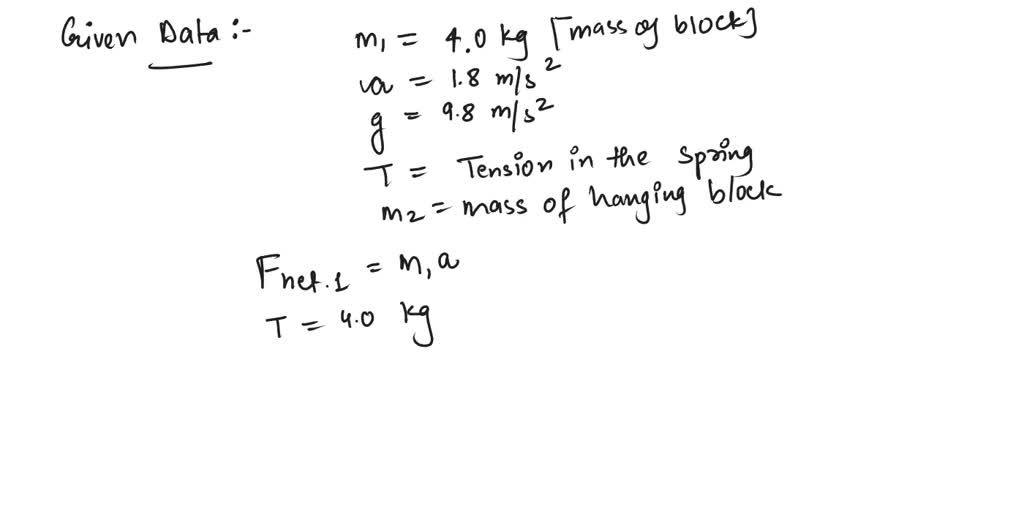 Given Data :-
m1 = 4.0 kg [mass of block]
a = 1.8 m/s²
g = 9.8 m/s²
T = Tension in the spring
m2 = mass of hanging block
Fnet.1 = m1a
T = 4.0 kg